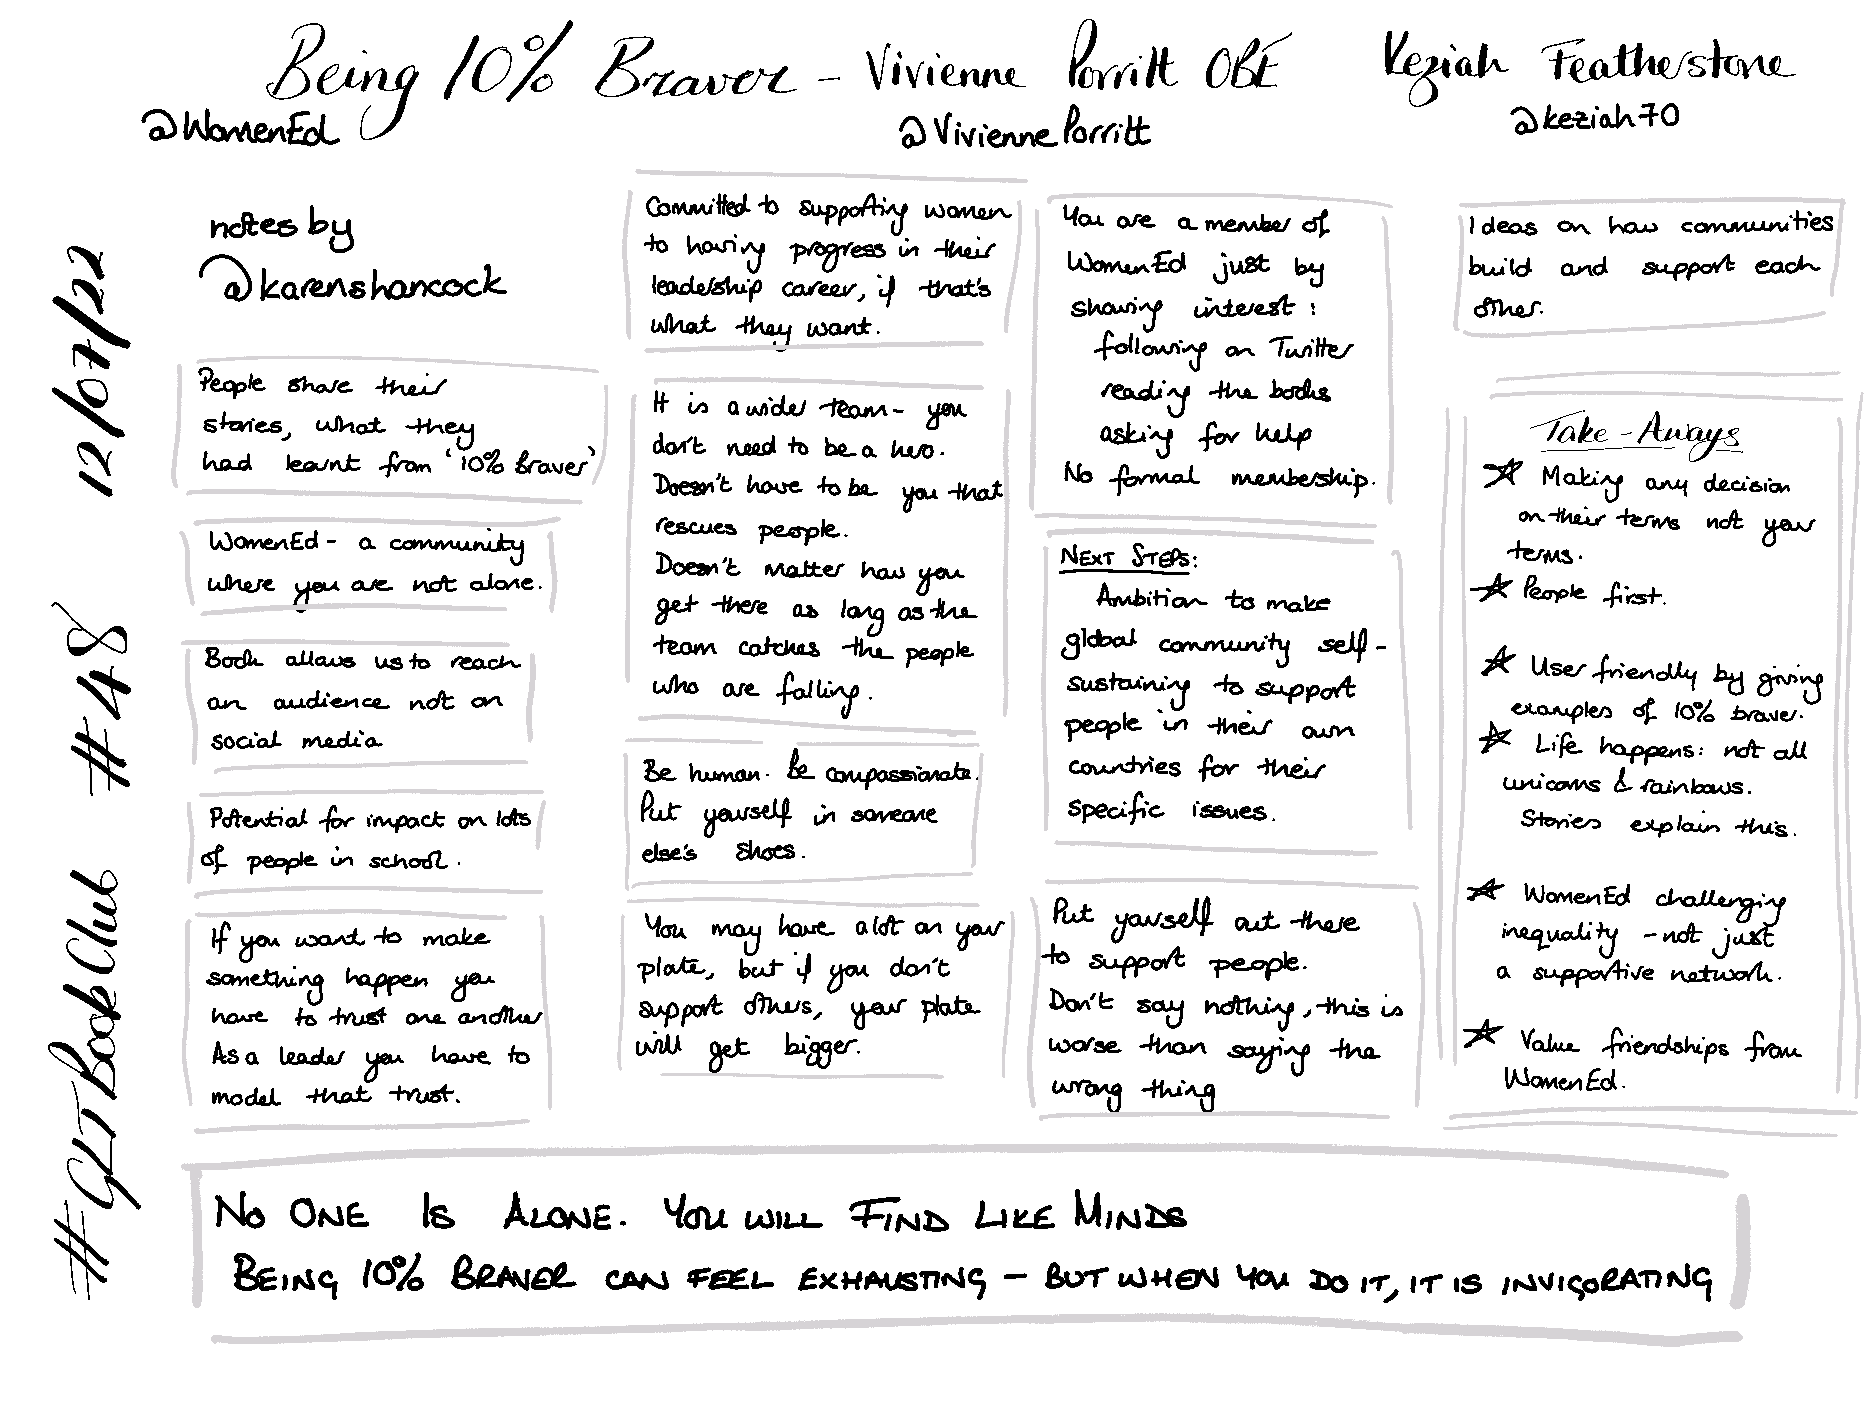 Being 10% Braver - Vivienne Porritt OBE Keziah Featherstone
@WomenEd @ViviennePorritt @keziah70
#GLTBookClub #48 12/07/22
notes by
@karenshancock
People share their
stories, what they
had learnt from '10% Braver'
WomenEd - a community
where you are not alone.
Book allows us to reach
an audience not on
social media
Potential for impact on lots
of people in school.
If you want to make
something happen you
have to trust one another
As a leader you have to
model that trust.
Committed to supporting women
to having progress in their
leadership career, if that's
what they want.
It is a wider team - you
don't need to be a hero.
Doesn't have to be you that
rescues people.
Doesn't matter how you
get there as long as the
team catches the people
who are falling.
Be human. Be compassionate.
Put yourself in someone
else's shoes.
You may have a lot on your
plate, but if you don't
support others, your plate
will get bigger.
You are a member of
WomenEd just by
showing interest:
following on Twitter
reading the books
asking for help
No formal membership.
NEXT STEPS:
Ambition to make
global community self-
sustaining to support
people in their own
countries for their
specific issues.
Put yourself out there
to support people.
Don't say nothing, this is
worse than saying the
wrong thing
Ideas on how communities
build and support each
other.
Take-Aways
☆ Making any decision
on their terms not your
terms.
☆ People first.
☆ User friendly by giving
examples of 10% braver.
☆ Life happens: not all
unicorns & rainbows.
Stories explain this.
☆ WomenEd challenging
inequality - not just
a supportive network.
☆ Value friendships from
WomenEd.
NO ONE IS ALONE. YOU WILL FIND LIKE MINDS
BEING 10% BRAVER CAN FEEL EXHAUSTING - BUT WHEN YOU DO IT, IT IS INVIGORATING